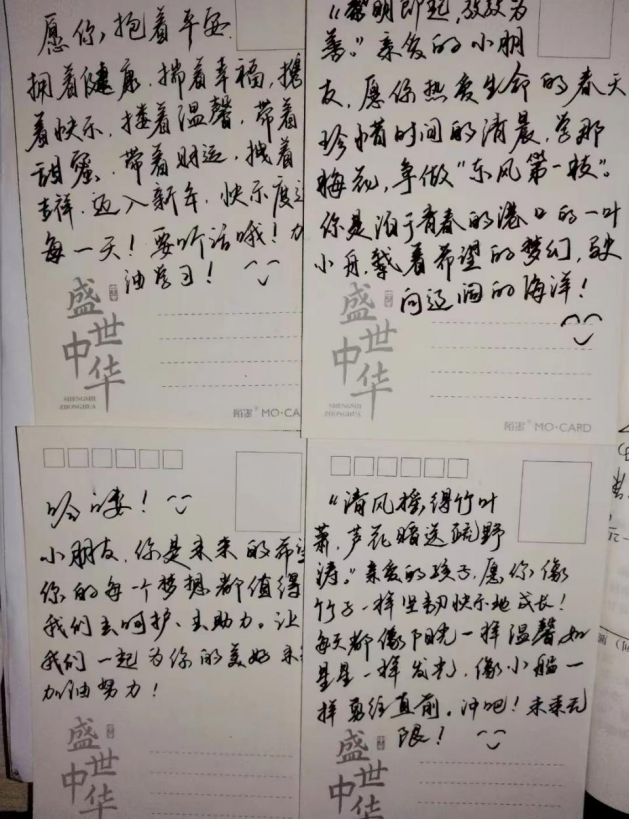 愿你，抱着平安.
拥着健康.揣着幸福，携
着快乐.搂着温馨，带着
甜蜜.带着财运.拽着
吉祥.迈入新年.快乐度过
每一天！要听话哦！加
油学习！
盛世中华
SHENGSHI
ZHONGHUA
MO·CARD
“黎明即起，孜孜为
善。”亲爱的小朋
友，愿你热爱生命的春天
珍惜时间的清晨，学那
梅花，争做“东风第一枝”。
你是泊于青春的港口的一叶
小舟，载着希望的梦幻，驶
向辽阔的海洋！
盛世中华
SHENGSHI
ZHONGHUA
MO·CARD
哈喽！
小朋友，你是未来的希望
你的每一个梦想都值得
我们去呵护、去助力。让
我们一起为你的美好未来
加油努力！
盛世中华
“清风摇得竹叶
萧，芦花暗送疏野
涛。”亲爱的孩子，愿你像
竹子一样坚韧快乐地成长！
每天都像阳光一样温馨如
星星一样发光，像小船一
样勇往直前。冲吧！未来无
限！
盛世中华